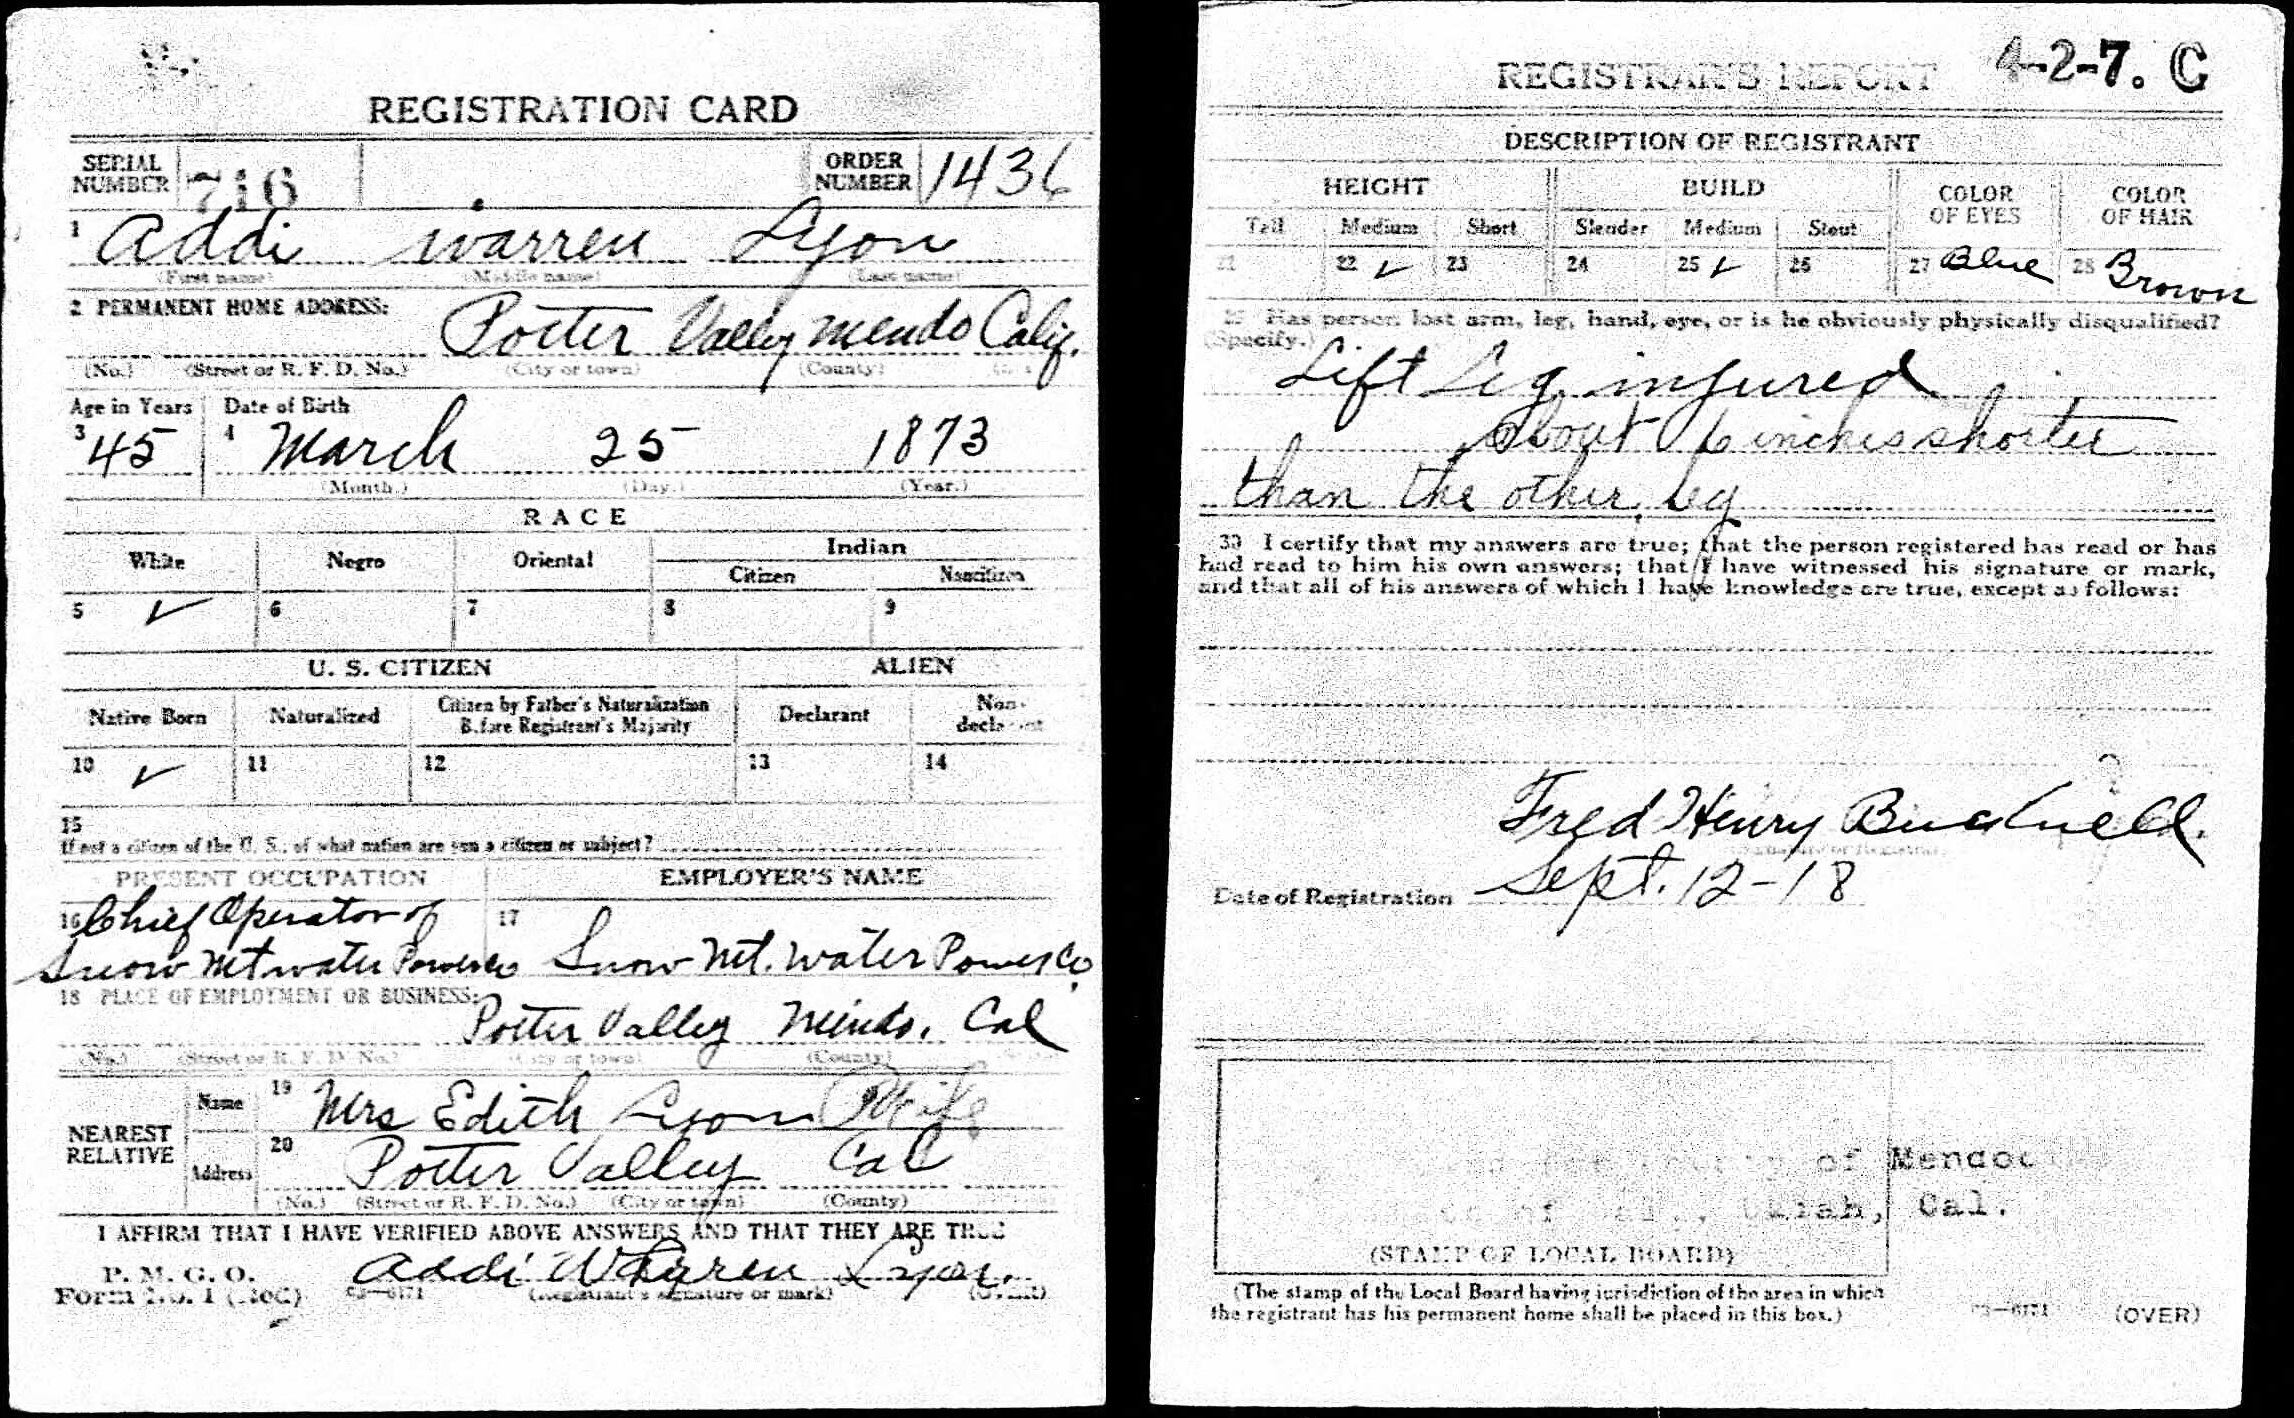 REGISTRATION CARD
SERIAL NUMBER 716 ORDER NUMBER 1436
1 Addi Warren Lyon
(First name) (Middle name) (Last name)
2 PERMANENT HOME ADDRESS:
Potter Valley Mendo Calif.
(No.) (Street or R. F. D. No.) (City or town) (County)
Age in Years Date of Birth
3 45 4 March 25 1873
(Month.) (Day.) (Year.)
RACE
White Negro Oriental Indian
Citizen Noncitizen
5 ✓ 6 7 8 9
U. S. CITIZEN ALIEN
Native Born Naturalized Citizen by Father's Naturalization Before Registrant's Majority Declarant Non-declarant
10 ✓ 11 12 13 14
15
If not a citizen of the U. S., of what nation are you a citizen or subject?
PRESENT OCCUPATION EMPLOYER'S NAME
16 Chief Operator of 17
Snow Mt water Power Co Snow Mt. Water Power Co.
18 PLACE OF EMPLOYMENT OR BUSINESS:
Potter Valley Mendo. Cal
(No.) (Street or R. F. D. No.) (City or town) (County)
NEAREST RELATIVE
Name 19 Mrs Edith Lyon Wife
Address 20 Potter Valley Cal
(No.) (Street or R. F. D. No.) (City or town) (County)
I AFFIRM THAT I HAVE VERIFIED ABOVE ANSWERS AND THAT THEY ARE TRUE
P. M. G. O.
Form No. 1 (Red) 03—6171 Addi Warren Lyon.
(Registrant's signature or mark) (OVER)
REGISTRAR'S REPORT 4-2-7. C
DESCRIPTION OF REGISTRANT
HEIGHT BUILD COLOR OF EYES COLOR OF HAIR
Tall Medium Short Slender Medium Stout
21 22 ✓ 23 24 25 ✓ 26 27 Blue 28 Brown
29 Has person lost arm, leg, hand, eye, or is he obviously physically disqualified?
(Specify.)
Lift Leg injured
about 6 inches shorter
than the other leg
30 I certify that my answers are true; that the person registered has read or has
had read to him his own answers; that I have witnessed his signature or mark,
and that all of his answers of which I have knowledge are true, except as follows:
Fred Henry
(Signature of Registrar)
Date of Registration Sept. 12-18
of Mendoc
Ukiah, Cal.
(STAMP OF LOCAL BOARD)
(The stamp of the Local Board having jurisdiction of the area in which
the registrant has his permanent home shall be placed in this box.)
03—6171 (OVER)